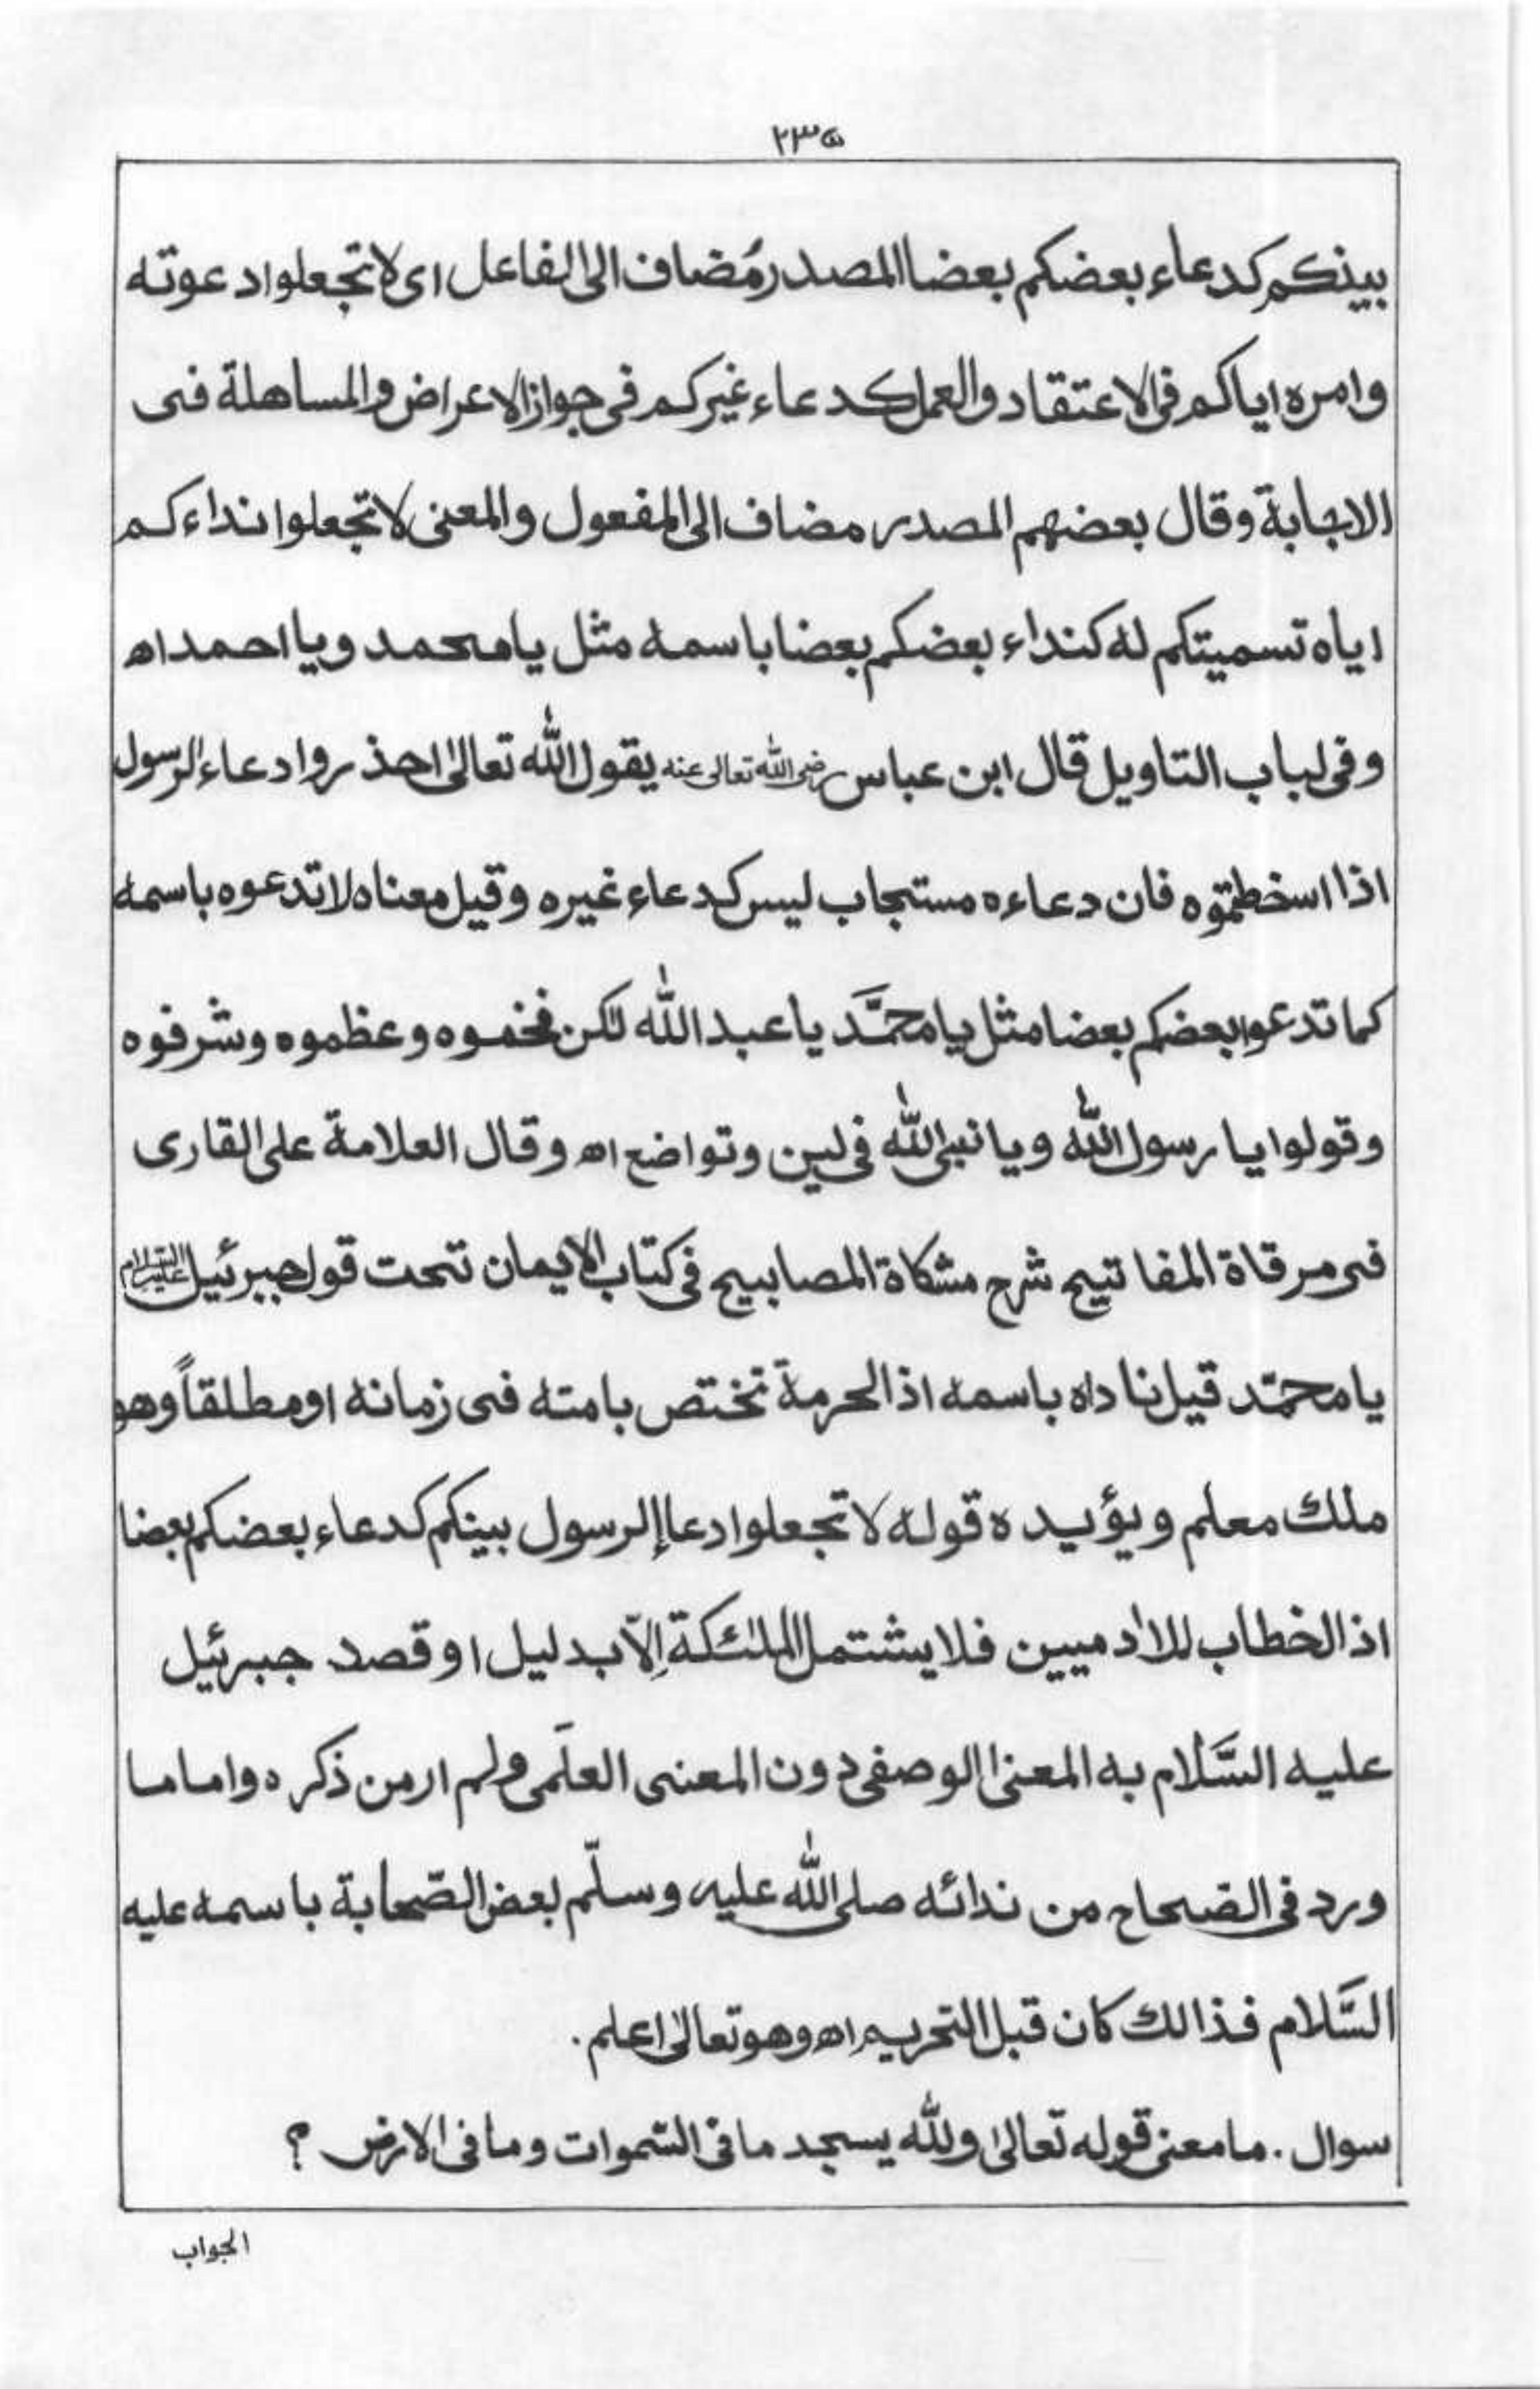 ٢٣٥
بينكم كدعاء بعضكم بعضا المصدر مُضاف الى الفاعل اى لا تجعلوا دعوته
وامره اياكم فى الاعتقاد والعمل كدعاء غيركم فى جواز الاعراض والمساهلة فى
الاجابة وقال بعضهم المصدر مضاف الى المفعول والمعنى لا تجعلوا نداءكم
اياه تسميتكم له كنداء بعضكم بعضا باسمه مثل يا محمد ويا احمد اه
وفى لباب التاويل قال ابن عباس رضى الله تعالى عنه يقول الله تعالىٰ احذروا دعاء الرسول
اذا اسخطتموه فان دعاءه مستجاب ليس كدعاء غيره وقيل معناه لا تدعوه باسمه
كما تدعو بعضكم بعضا مثل يا محمَّد يا عبد الله لكن فخموه وعظموه وشرفوه
وقولوا يا رسول الله ويا نبى الله فى لين وتواضع اه وقال العلامة على القارى
فى مرقاة المفاتيح شرح مشكاة المصابيح فى كتاب الايمان تحت قول جبرئيل عليه السلام
يا محمّد قيل ناداه باسمه اذ الحرمة تختص بامته فى زمانه او مطلقاً وهو
ملك معلم ويؤيده قوله لا تجعلوا دعاء الرسول بينكم كدعاء بعضكم بعضا
اذ الخطاب للادميين فلا يشتمل الملئكة اِلّا بدليل او قصد جبرئيل
عليه السَّلام به المعنى الوصفى دون المعنى العلَمى ولم ار من ذكره واما ما
ورد فى الصحاح من ندائه صلى الله عليه وسلّم بعض الصّحابة باسمه عليه
السَّلام فذالك كان قبل التحريم اه وهو تعالىٰ اعلم.
سوال. ما معنى قوله تعالىٰ ولله يسجد ما فى السّموات وما فى الارض ؟
الجواب